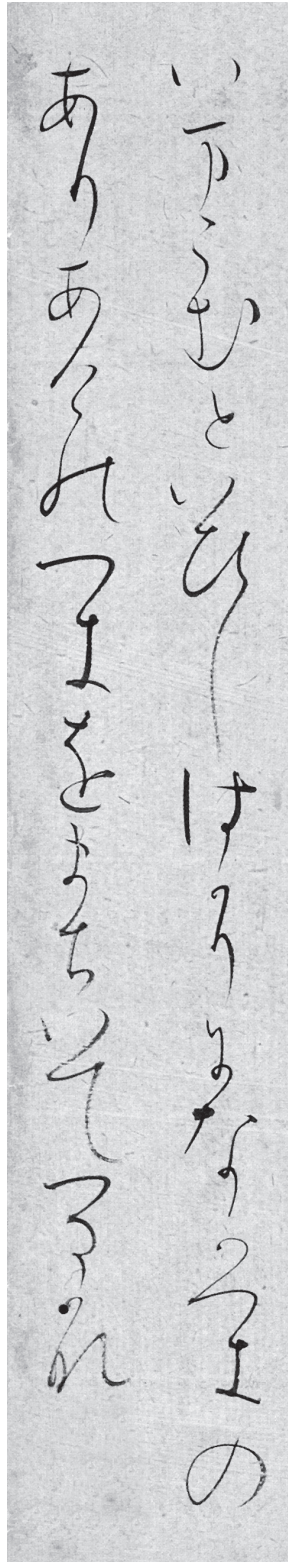 いまこむといひしはかりになかつきの
ありあけのつきをまちいてつるかな